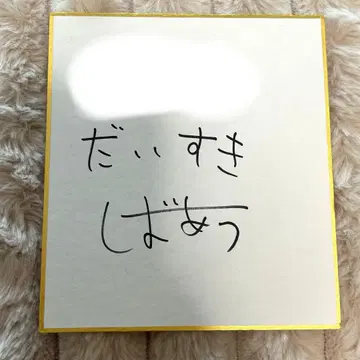 だいすき
しばあつ